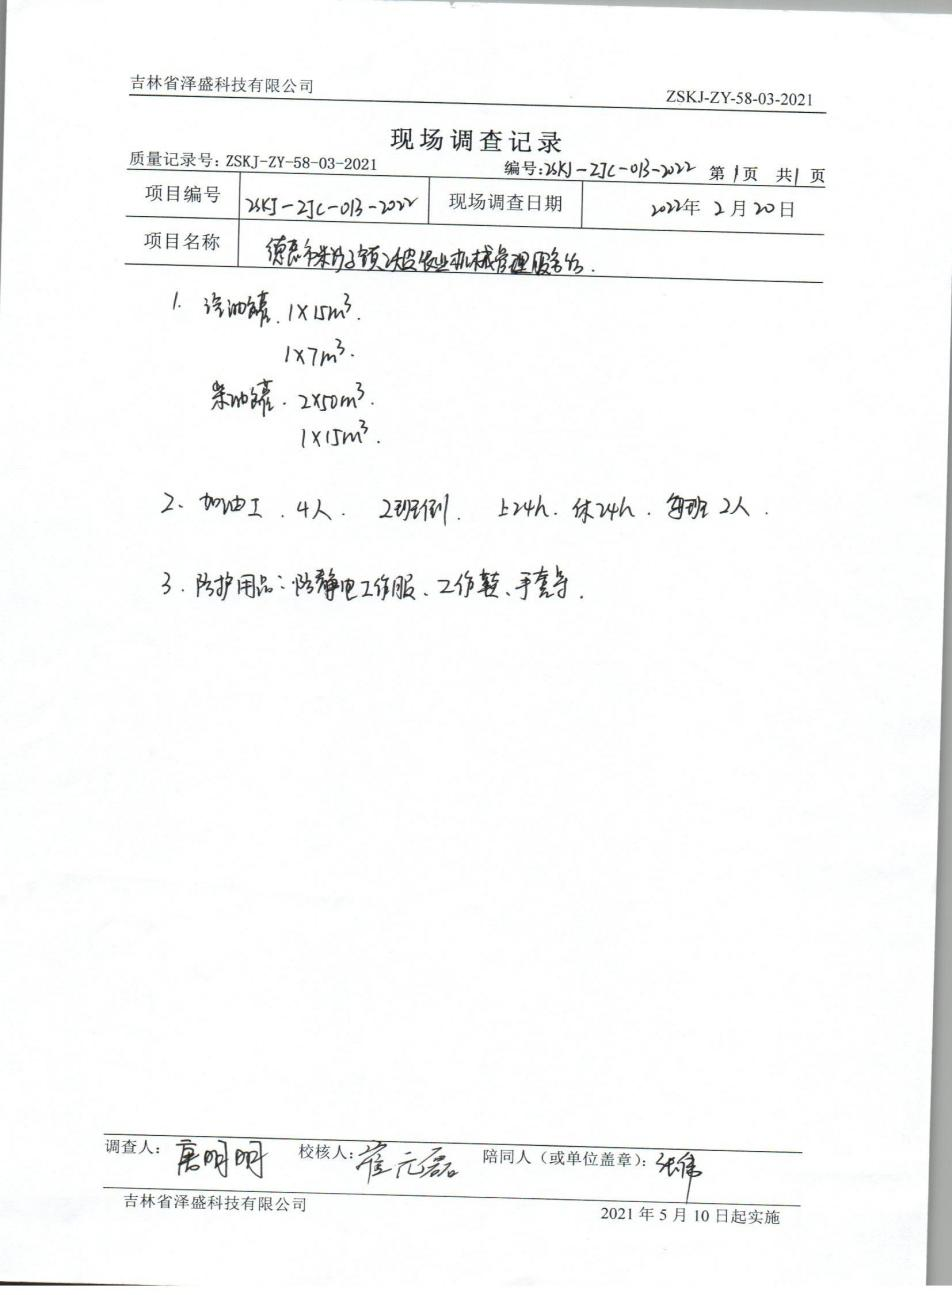 吉林省泽盛科技有限公司
ZSKJ-ZY-58-03-2021
现场调查记录
质量记录号: ZSKJ-ZY-58-03-2021 编号:ZSKJ-ZJC-013-2022 第1页 共1页
项目编号 ZSKJ-ZJC-013-2022 现场调查日期 2022年2月20日
项目名称 德惠市朱城子镇 农业机械管理服务站.
1. 汽油罐. 1×15m³.
1×7m³.
柴油罐. 2×50m³.
1×15m³.
2. 加油工. 4人. 2班倒. 上24h. 休24h. 每班2人.
3. 防护用品: 防静电工作服、工作鞋、手套等.
调查人: 唐明明 校核人: 崔元磊 陪同人（或单位盖章）: 张伟
吉林省泽盛科技有限公司
2021年5月10日起实施